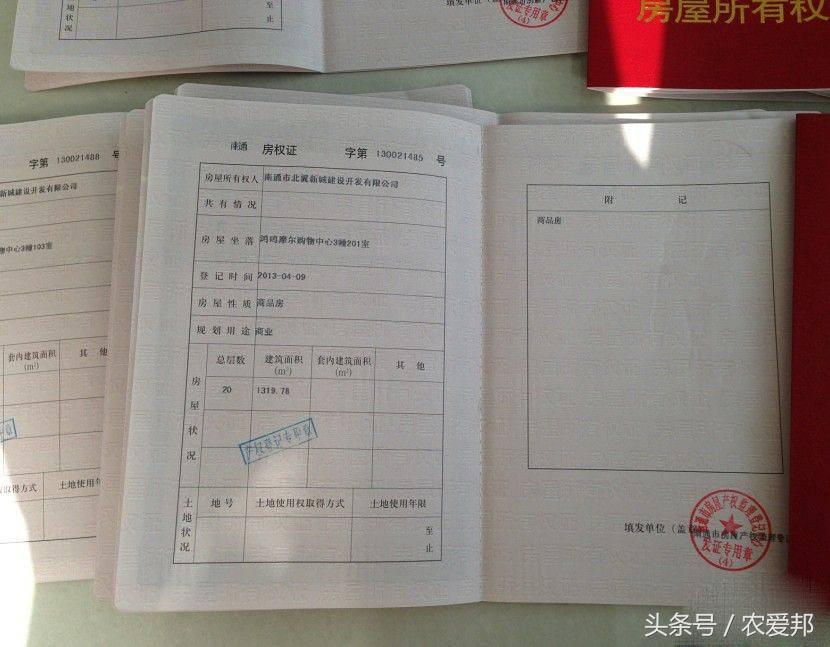 房屋所有权
填发单位
发证专用章
(4)
状况
至
止
字第 130021488 号
新城建设开发有限公司
中心3幢103室
套内建筑面积 其
(m²)
取得方式 土地使用年
南通 房权证 字第 130021485 号
房屋所有权人 南通市北翼新城建设开发有限公司
共有情况
房屋坐落 鸿鸣摩尔购物中心3幢201室
登记时间 2013-04-09
房屋性质 商品房
规划用途 商业
房屋状况
总层数 建筑面积 套内建筑面积 其他
(m²) (m²)
20 1319.78
产权登记专用章
土地状况
地号 土地使用权取得方式 土地使用年限
至
止
附 记
商品房
填发单位(盖章
南通市房屋产权监理登记
发证专用章
(4)
头条号 / 农爱邦